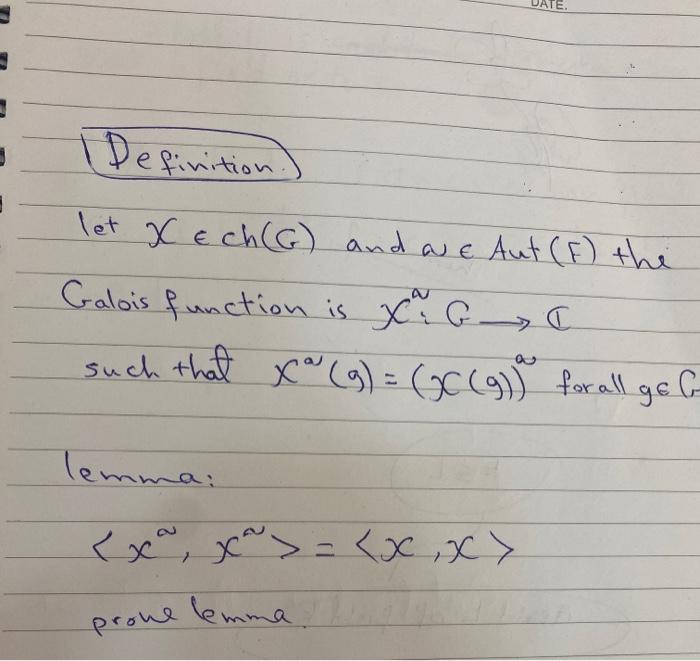 DATE.
Definition.
let χ ∈ ch(G) and ω ∈ Aut(F) the
Galois function is χ^ω: G → ℂ
such that χ^ω(g) = (χ(g))^ω for all g ∈ G
lemma:
<χ^ω, χ^ω> = <χ, χ>
prove lemma.